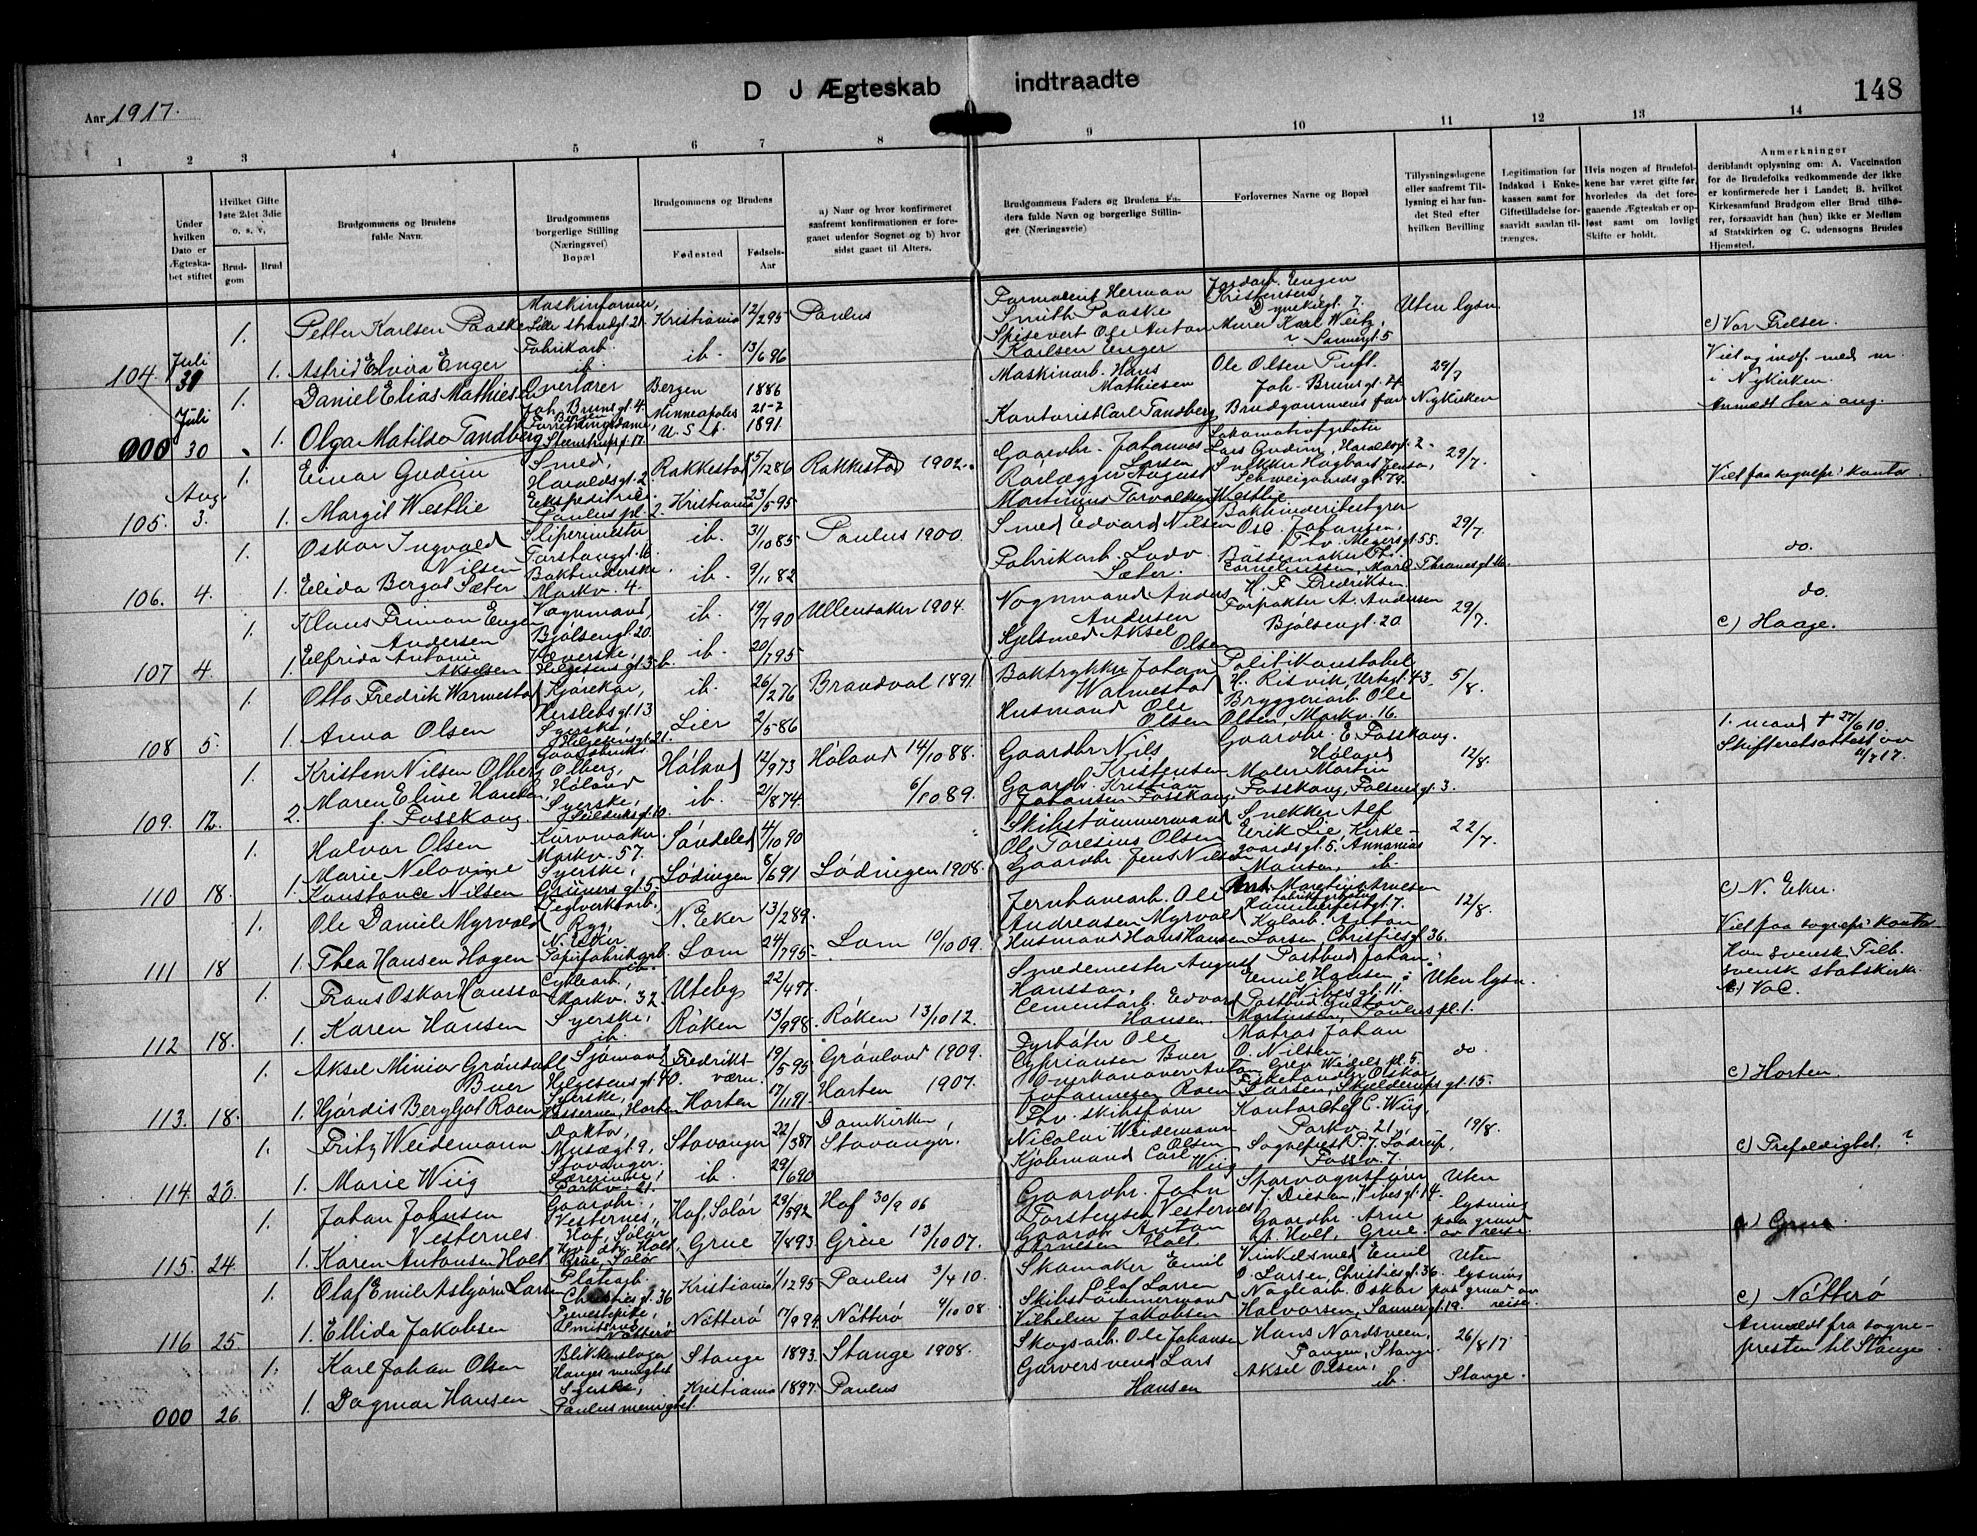 D J Ægteskab indtraadte
148
Aar 1917.
1 2 3 4 5 6 7 8 9 10 11 12 13 14
Under hvilken Dato er Ægteskabet stiftet
Hvilket Gifte 1ste 2det 3die o. s. v,
Brudgom
Brud
Brudgommens og Brudens fulde Navn.
Brudgommens borgerlige Stilling (Næringsvei) Bopæl
Brudgommens og Brudens
Fødested
Fødsels-Aar
a) Naar og hvor konfirmeret saafremt konfirmationen er foregaaet udenfor Sognet og b) hvor sidst gaaet til Alters.
Brudgommens Faders og Brudens Faders fulde Navn og borgerlige Stillinger (Næringsveie)
Forlovernes Navne og Bopæl
Tillysningsdagene eller saafremt Tillysning ei har fundet Sted efter hvilken Bevilling
Legitimation for Indskud i Enkekassen samt for Giftetilladelse forsaavidt saadan tiltrænges.
Hvis nogen af Brudefolkene har været gifte før, hvorledes da det foregaaende Ægteskab er opløst samt om lovligt Skifte er holdt.
Anmerkninger
deriblandt oplysning om: A. Vaccination for de Brudefolks vedkommende der ikke er konfirmerede her i Landet; B. hvilket Kirkesamfund Brudgom eller Brud tilhører, forsaavidt han (hun) ikke er Medlem af Statskirken og C. udensogns Brudes Hjemsted.
1. Petter Karlsen Paaske Maskinformer, Lille strandgt. 21. Kristiania 12/2 95 Paulus
Formalent Herman Smith Paaske
Jordarb. Engen Kristensen Dynekilgt. 7. Uten lysn.
104. Juli 31 1. Astrid Elvira Enger Fabrikarb. ib. ib. 13/6 96
Spisevert Ole Anton Karlsen Enger
Murer Karl Weitz, Sannergt. 5
c) Vor Frelser.
1. Daniel Elias Mathiesen Overlærer Joh. Brunsgt. 4. Bergen Bergen 1886
Maskinarb. Hans Mathiesen
Ole Olsen Tuft. Joh. Brunsgt. 4. 29/7
Viet og indf. med nr i Nykirken.
000 Juli 30 1. Olga Matilde Tandberg Forretningsdame, Steenstrupsgt. 17. Minneapolis U. S. A. 21-2 1891.
Kontorist Carl Tandberg, Brudgommens far Nykirken
Anmeldt her i aug.
1. Einar Gudim Smed, Haraldsgt. 2 Rakkestad 15/12 86 Rakkestad 1902.
Gaardbr. Johannes Larsen
Lokomotivfyrbøter Lars Gudim, Haraldsgt. 2 29/7.
105. Aug. 3. 1. Margit Westlie Ekspeditrice Paulus pl. 2. Kristiania 23/5 95
Rørlægger August Martinius Torvaldsen Westlie
Snekker Hagbart Jensen, Schweigaardsgt. 79.
Viet paa sognepr.s kontor.
1. Oskar Ingvald Nilsen Sliperimester Torshauggt. 16. ib. 31/10 85 Paulus 1900.
Smed Edvard Nilsen
Bokbinderibestyrer Osc. Johansen, Thv. Meyersgt. 55. 29/7.
106. 4. 1. Elida Bergot Sæter Bokbinderske Markv. 4. ib. 9/11 82
Fabrikarb. Ludv. Sæter.
Børstemaker Th. Corneliussen, Marc. Thranesgt. 16.
do.
1. Klaus Friman Engen Andersen Vognmand, Bjølsengt. 20. ib. 19/7 90 Ullensaker 1904.
Vognmand Anders Andersen
H. F. Fredriksen. 29/7.
do.
107 4. 1. Elfrida Antonie Akselsen Væverske, Helgesensgt. 3 b. ib. 20/7 95
Gjelsmed Aksel Olsen
Forpakter A. Andersen Bjølsengt. 20
c) Hauge.
1. Otto Fredrik Warmestad Kjørekar, Herslebsgt. 13 ib. 26/2 76 Brandval 1891.
Boktrykker Johan Warmestad
Politikonstabel H. Risvik, Urtegt. 43 5/8.
108 5. 1. Anna Olsen Syerske, Helgesensgt. 21. Lier 2/5 86
Husmand Ole Olsen
Bryggeriarb. Ole Olsen, Markv. 16.
1. Kristen Nilsen Olberg Gaardbruker Olberg, Høland Høland 12/9 73 Høland 14/10 88.
Gaardbr. Nils Kristensen
Gaardbr. E. Fosskaug. Høland 12/8.
1. mand † 27/6 10. Skifteretsattest av 11/7 17.
109. 12. 2. Maren Eline Hansen f. Fosskaug. Syerske, ib. 21/8 74. 6/10 89.
Gaardbr. Kristian Johansen Fosskaug,
Maler Martin Fosskaug, Falsensgt. 3.
1. Halvor Olsen Kurvmaker Markv. 57. Søndeled 4/10 90
Skibstømmermand Ole Toresius Olsen
Snekker Alf Erik Lie, Kirkegaardsgt. 5. 22/7.
110 18. 1. Marie Nelovine Konstance Nilsen Syerske, Grünersgt. 5 Lødingen 8/6 91 Lødingen 1908.
Gaardbr. Jens Nilsen
Annanias Hansen ib.
1. Ole Daniel Myrvold Teglverksarb. N. Eker N. Eker 13/2 89.
Jernbanearb. Ole Andreasen Myrvold
Hammerfestgt. 7. 12/8.
c) N. Eker.
111 18 1. Thea Hansen Hagen Papirfabrikarb. ib. Lom 24/7 95. Lom 10/10 09.
Husmand Hans Hansen
Kularb. Anton Larsen, Christiesgt. 36.
Viet paa sognepr.s kontor
1. Frans Oskar Hansson Cyklearb., Markv. 32. Uteby 22/4 97.
Smedemester August Hansson,
Postbud Johan Emil Hansen, Vibesgt. 11. Uten lysn.
Han svensk Tilh. svensk statskirke.
112 18. 1. Karen Hansen Syerske, ib. Røken 13/9 98. Røken 13/10 12.
Cementarb. Edvard Hansen
Postbud Gustav Martinsen, Paulus pl. 1.
1. Aksel Minia Grøndahl Buer Sjømand, Helgesensgt. 40. Fredriksværn. 19/5 95 Grønland 1909.
Fyrbøter Ole Cyprianson Buer
Matros Johan O. Nilsen do.
113. 18. 1. Hjørdis Bergljot Roen Syerske, Horten Horten 17/11 91 Horten 1907.
Overkanoner Anton Johannesen Roen
Fiskehandler Oskar Larsen, Skjelderupsgt. 15.
c) Horten.
1. Fritz Weidemann Doktor, Musegt. 9, Stavanger. Stavanger 22/3 87 Domkirken Stavanger,
Fhv. skibsfører Nicolai Weidemann
Kontorchef C. Wiig, Parkv. 21, 19/8.
114. 23. 1. Marie Wiig Lærerinde, Parkv. 21. ib. 29/6 90
Kjølemand Carl Olsen Wiig
Sogneprest P. J. Lødrup, Fossv. 7.
c) Trefoldighet, ?
1. Johan Johnsen Vesternes. Gaardbr. Vesternes, Hof, Solør Hof, Solør 29/5 92 Hof 30/9 06
Gaardbr. John Torstensen Vesternes
Sporvognsfører J. Diesen, Vibesgt. 14. Uten lysning paa grund av reise
115. 24. 1. Karen Antonsen Holt Grue 7/8 93. Grue 13/10 07.
Gaardbr. Anton Arnesen Holt
Gaardbr. Arne A. Holt, Grue.
c) Grue
1. Olaf Emil Asbjørn Larsen Platearb. Christiesgt. 36 Kristiania 11/12 95 Paulus 3/4 10.
Skomaker Emil Olaf Larsen
Vinkelsmed Emil O. Larsen, Christiesgt. 36 Uten lysning paa grund av reise.
116 25. 1. Ellida Jakobsen Tjenestepike, Nøtterø Nøtterø 17/9 94. Nøtterø 4/10 08.
Skibstømmermand Vilhelm Jakobsen
Naglearb. Oskar Halvorsen, Sannergt. 19.
c) Nøtterø
1. Karl Johan Olsen Blikkenslager Hauges menighet Stange 1893. Stange 1908.
Skogsarb. Ole Johansen
Hans Nordsveen, Tangen, Stange. 26/8 17
Anmeldt fra sognepresten til Stange
000 26. 1. Dagmar Hansen Syerske, Paulus menighet. Kristiania 1897. Paulus
Garversvend Lars Hansen
Aksel Olsen, ib. Stange.